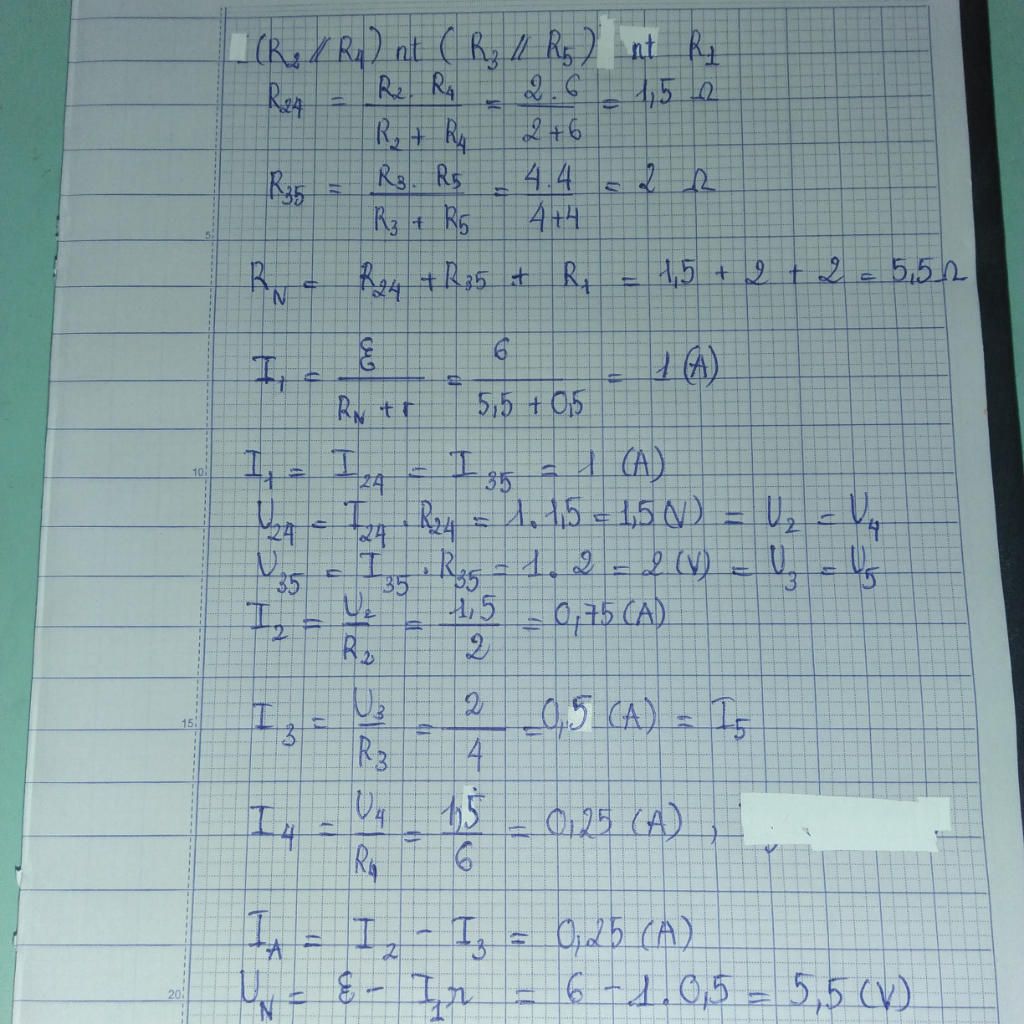 (R₂ // R₄) nt (R₃ // R₅) nt R₁
R₂₄ = (R₂ . R₄)/(R₂ + R₄) = (2 . 6)/(2 + 6) = 1,5 Ω
R₃₅ = (R₃ . R₅)/(R₃ + R₅) = (4 . 4)/(4 + 4) = 2 Ω
5
R_N = R₂₄ + R₃₅ + R₁ = 1,5 + 2 + 2 = 5,5 Ω
I₁ = ℰ/(R_N + r) = 6/(5,5 + 0,5) = 1 (A)
10
I₁ = I₂₄ = I₃₅ = 1 (A)
U₂₄ = I₂₄ . R₂₄ = 1 . 1,5 = 1,5 (V) = U₂ = U₄
U₃₅ = I₃₅ . R₃₅ = 1 . 2 = 2 (V) = U₃ = U₅
I₂ = U₂/R₂ = 1,5/2 = 0,75 (A)
15
I₃ = U₃/R₃ = 2/4 = 0,5 (A) = I₅
I₄ = U₄/R₄ = 1,5/6 = 0,25 (A) ,
I_A = I₂ - I₃ = 0,25 (A)
20
U_N = ℰ - I₁r = 6 - 1 . 0,5 = 5,5 (V)